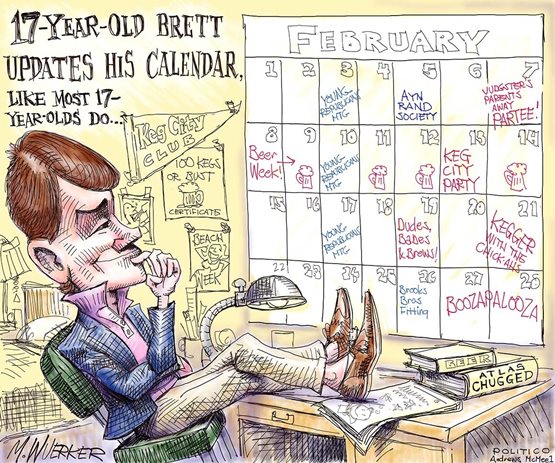 17-YEAR-OLD BRETT
UPDATES HIS CALENDAR,
LIKE MOST 17-
YEAR-OLDS DO...
KEG CITY
CLUB
100 KEGS
OR BUST
CERTIFICATE
BEACH
WEEK
FEBRUARY
1 2 3 4 5 6 7
YOUNG
REPUBLICANS
MTG
AYN
RAND
SOCIETY
JUDGSTER'S
PARENTS
AWAY
PARTEE!
8 9 10 11 12 13 14
Beer
Week!
YOUNG
REPUBLICANS
MTG
KEG
CITY
PARTY
15 16 17 18 19 20 21
YOUNG
REPUBLICANS
MTG
Dudes,
Babes
& Brews!
KEGGER
WITH THE
CHICK-AHS
22 23 24 25 26 27 28
Brooks
Bros
Fitting
BOOZAPALOOZA
BEER
ATLAS
CHUGGED
M.WUERKER
POLITICO
Andrews McMeel